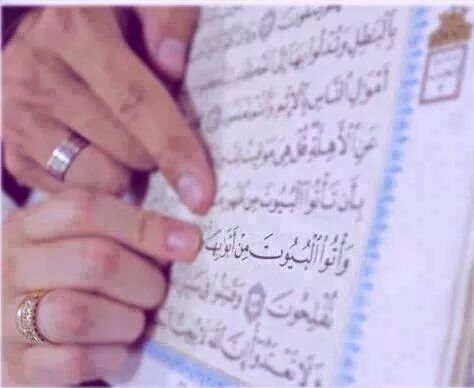 يَتَّقُونَ
بِٱلْبَٰطِلِ وَتُدْلُوا۟ بِهَآ إِلَى ٱلْحُكَّامِ
أَمْوَٰلِ ٱلنَّاسِ بِٱلْإِثْمِ وَأَنتُمْ تَعْلَمُونَ
عَنِ ٱلْأَهِلَّةِ قُلْ هِىَ مَوَٰقِيتُ
بِأَن تَأْتُوا۟ ٱلْبُيُوتَ مِن ظُهُورِهَا
وَأْتُوا۟ ٱلْبُيُوتَ مِنْ أَبْوَٰبِهَا
تُفْلِحُونَ وَقَٰتِلُوا۟ فِى سَبِيلِ
وَلَا تَعْتَدُوٓا۟ إِنَّ ٱللَّهَ لَا يُحِبُّ